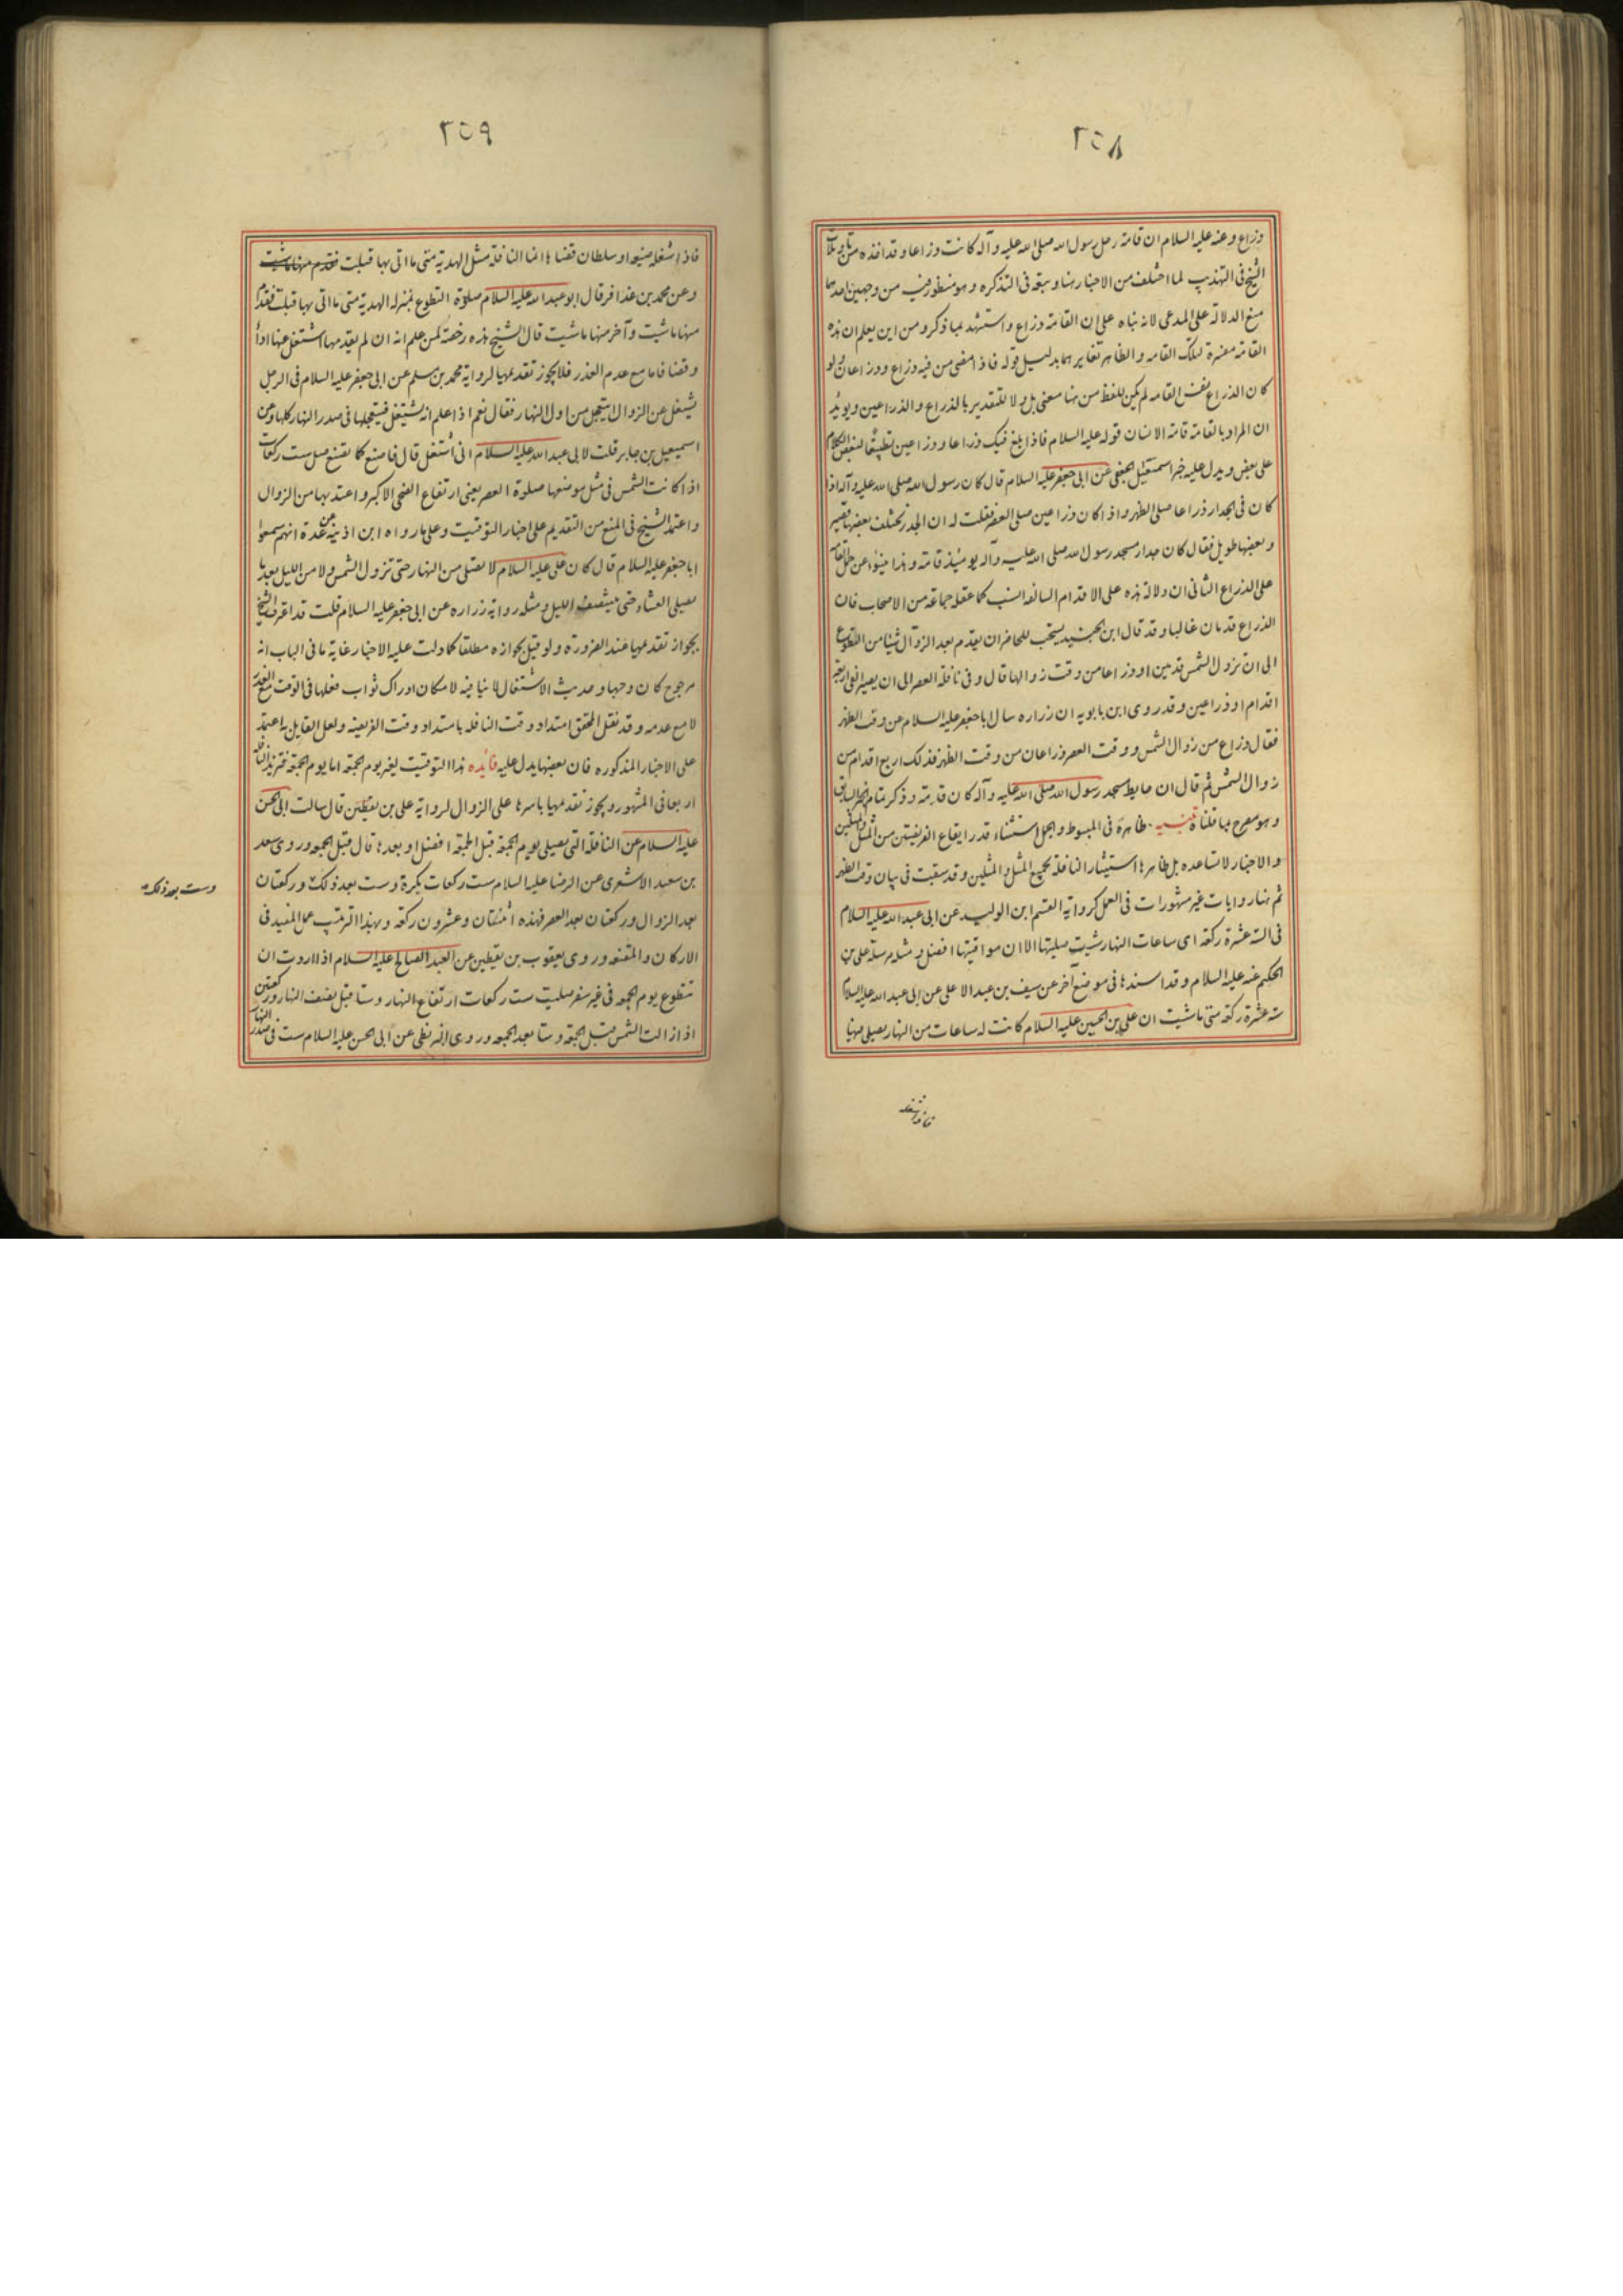 ٢٥٨
وذراع وعنه عليه السلام ان قامة رحل رسول الله صلى الله عليه وآله كانت ذراعا وقد اخذه من تاويلات
الشيخ فى التهذيب لما اختلف من الاخبار هنا وسبقه فى التذكره وهو منظور فيه من وجهين احدهما
منع الدلالة على المدعى لانه بناه على ان القامة ذراع واستشهد بما ذكر ومن اين يعلم ان هذه
القامة مفسرة لتلك القامه والظاهر تغايرهما بدليل قوله فاذا مضى من فيه ذراع وذراعان ولو
كان الذراع نفس القامه لم يكن للفظ من هنا معنى بل ولا للتقدير بالذراع والذراعين ويؤيد
ان المراد بالقامة قامة الانسان قوله عليه السلام فاذا بلغ فيك ذراعا وذراعين تطبيقا لبعض الكلام
على بعض ويدل عليه خبر اسمعيل الجعفى عن ابى جعفر عليه السلام قال كان رسول الله صلى الله عليه وآله اذا
كان فى الجدار ذراعا صلى الظهر واذا كان ذراعين صلى العصر فقلت له ان الجدر تختلف بعضها قصير
وبعضها طويل فقال كان جدار مسجد رسول الله صلى الله عليه وآله يومئذ قامة وهذا ينبؤ عن حمل القامة
على الذراع الثانى ان دلالة هذه على الاقدام السالفه انسب كما عقله جماعة من الاصحاب فان
الذراع قدمان غالبا وقد قال ابن الجنيد يستحب للحاضر ان يقدم بعد الزوال شيئا من التطوع
الى ان تزول الشمس قدمين او ذراعا من وقت زوالها قال وفى نافلة العصر الى ان يصير الفئ اربعة
اقدام او ذراعين وقد روى ابن بابويه ان زراره سال ابا جعفر عليه السلام عن وقت الظهر
فقال ذراع من زوال الشمس ووقت العصر ذراعان من وقت الظهر فذلك اربع اقدام من
زوال الشمس ثم قال ان حايط مسجد رسول الله صلى الله عليه وآله كان قامة وذكر تمام الخبر السابق
وهو مصرح بما قلناه تنبيه ظاهره فى المبسوط والجمل استثناء قدر ايقاع الفريضتين من المثل والمثلين
والاخبار لا تساعده بل ظاهرها استيثار النافلة بجميع المثل والمثلين وقد سبقت فى بيان وقت الظهر
ثم هنا روايات غير مشهورات فى العمل كرواية القسم ابن الوليد عن ابى عبد الله عليه السلام
فى الستة عشرة ركعة اى ساعات النهار شيت صليتها الا ان مواقيتها افضل ومثله مرسلة على بن
الحكم عنه عليه السلام وقد اسندها فى موضع آخر عن سيف بن عبد الاعلى عن ابى عبد الله عليه السلام
ستة عشرة ركعة متى ما شيت ان على بن الحسين عليه السلام كانت له ساعات من النهار يصلى فيها
فاذا شغله
٢٥٩
فاذا شغله ضيعه او سلطان قضاها انما النافلة مثل الهدية متى ما اتى بها قبلت فقدم منها ما شيت
وعن محمد بن عذافر قال ابو عبد الله عليه السلام صلوة التطوع بمنزلة الهدية متى ما اتى بها قبلت فقدم
منها ما شيت وآخر منها ما شيت قال الشيخ هذه رخصة لمن علم انه ان لم يقدمها اشتغل عنها اداء
وقضا فاما مع عدم العذر فلا يجوز تقديمها لرواية محمد بن مسلم عن ابى جعفر عليه السلام فى الرجل
يشتغل عن الزوال ايتعجل من اول النهار فقال نعم اذا علم انه يشتغل فيتعجلها فى صدر النهار كلها وعن
اسمعيل بن جابر قلت لابى عبد الله عليه السلام انى اشتغل قال فاصنع كما نصنع صل ست ركعات
اذا كانت الشمس فى مثل موضعها صلوة العصر يعنى ارتفاع الضحى الاكبر واعتد بها من الزوال
واعتمد الشيخ فى المنع من التقديم على اخبار التوقيت وعلى ما رواه ابن اذينه عن عدة انهم سمعوا
ابا جعفر عليه السلام قال كان على عليه السلام لا يصلى من النهار حتى تزول الشمس ولا من الليل بعد ما
يصلى العشاء حتى ينتصف الليل ومثله رواية زراره عن ابى جعفر عليه السلام قلت قد اعترف الشيخ
بجواز تقديمها عند الضرورة ولو قيل بجوازه مطلقا كما دلت عليه الاخبار غاية ما فى الباب انه
مرجوح كان وجها وحديث الاشتغال لا ينافيه لامكان ادراك ثواب فعلها فى الوقت مع العذر
لا مع عدمه وقد نقل المحقق امتداد وقت النافله بامتداد وقت الفريضه ولعل القايل به اعتمد
على الاخبار المذكوره فان بعضها يدل عليه فائده هذا التوقيت لغير يوم الجمعة اما يوم الجمعة فتزيد النافلة
اربعا فى المشهور ويجوز تقديمها باسرها على الزوال لرواية على بن يقطين قال سالت ابى الحسن
عليه السلام عن النافلة التى تصلى يوم الجمعة قبل الجمعة افضل او بعدها قال قبل الجمعه وروى سعد
بن سعيد الاشعرى عن الرضا عليه السلام ست ركعات بكرة وست بعد ذلك وركعتان
وست بعد ذلك
بعد الزوال وركعتان بعد العصر فهذه اثنتان وعشرون ركعة وبهذا الترتيب عمل المفيد فى
الاركان والمقنعه وروى يعقوب بن يقطين عن العبد الصالح عليه السلام اذا اردت ان
تتطوع يوم الجمعه فى غير سفر صليت ست ركعات ارتفاع النهار وستا قبل نصف النهار وركعتين
اذا زالت الشمس قبل الجمعة وستا بعد الجمعه وروى البزنطى عن ابى الحسن عليه السلام ست فى صدر النهار